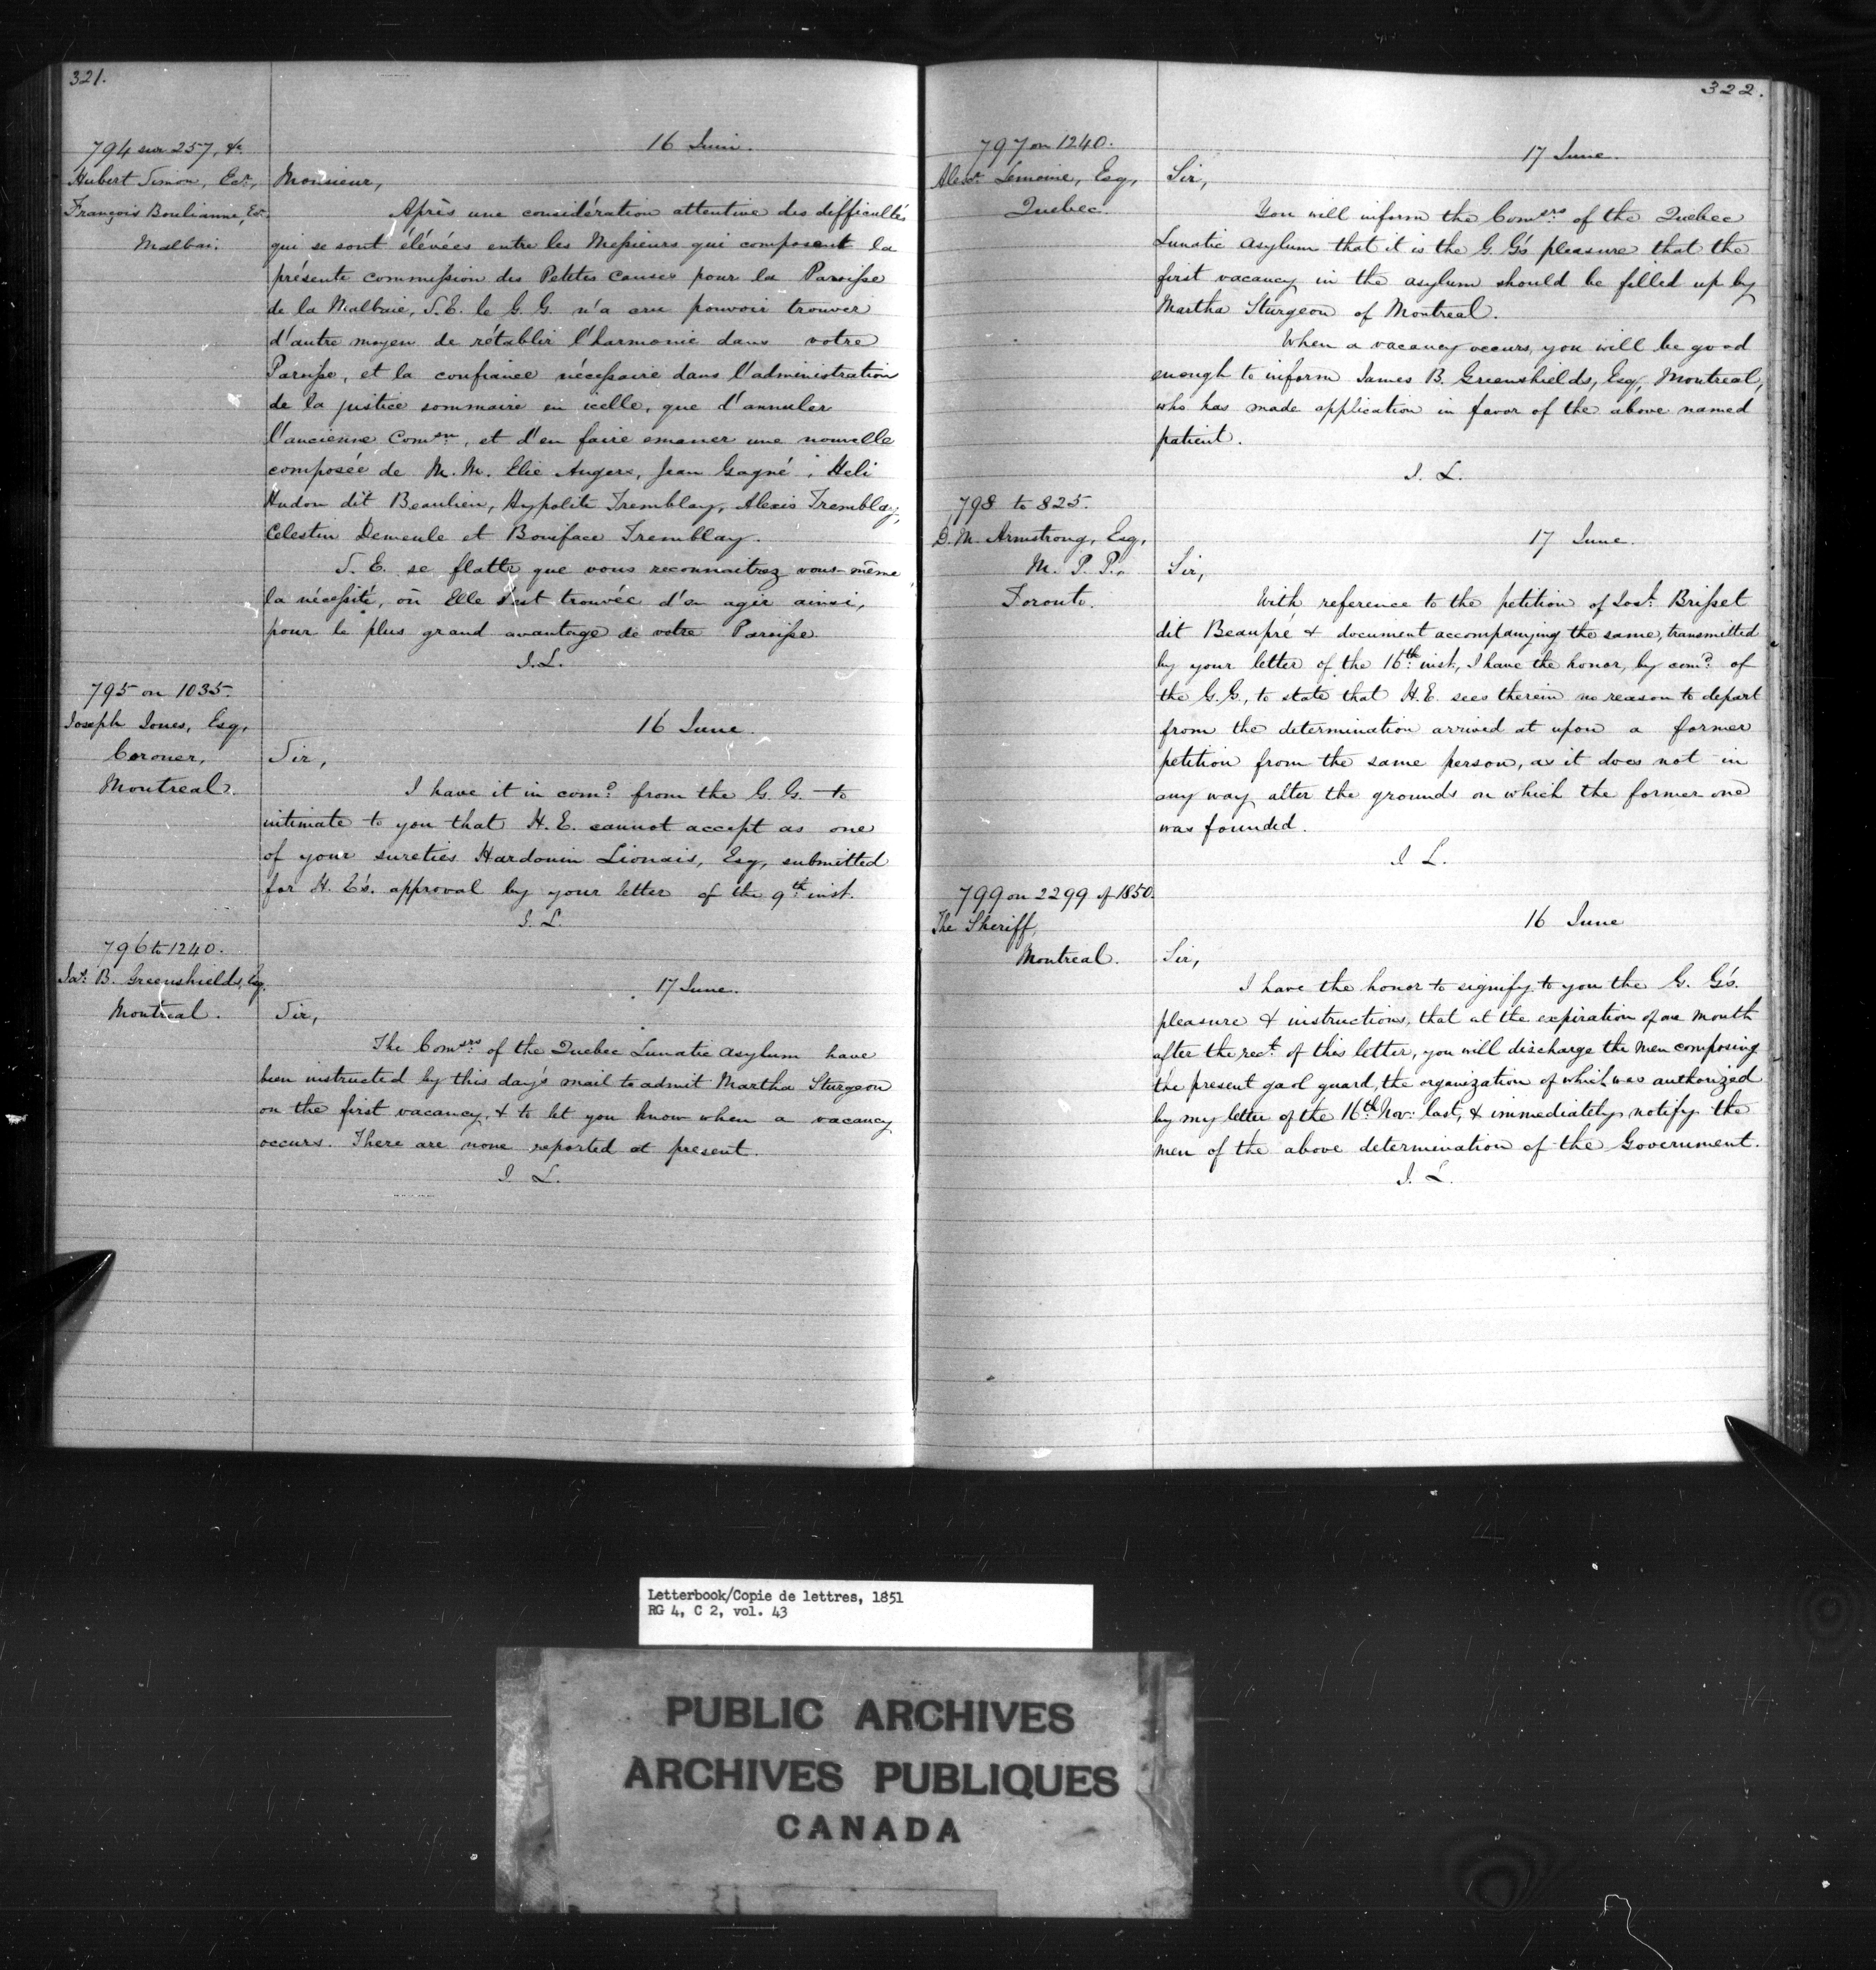 321.
794 sur 257, &c
Hubert Simon, Ecr,
François Boulianne, Ecr
Malbai.
16 Juin.
Monsieur,
Après une considération attentive des difficultés
qui se sont élévées entre les Messieurs qui composent la
présente commission des Petites Causes pour la Paroisse
de la Malbaie, S.E. le G.G. n'a cru pouvoir trouver
d'autre moyen de rétablir l'harmonie dans votre
Paroisse, et la confiance nécessaire dans l'administration
de la justice sommaire en icelle, que d'annuler
l'ancienne Comon, et d'en faire emaner une nouvelle
composée de M.M. Elie Angers, Jean Gagné, Heli
Hudon dit Beaulieu, Hypolite Tremblay, Alexis Tremblay,
Celestin Demeule et Boniface Tremblay.
S. E. se flatte que vous reconnaitrez vous-même
la nécessité, où Elle s'est trouvée d'en agir ainsi,
pour le plus grand avantage de votre Paroisse.
J.L.
795 on 1035.
Joseph Jones, Esq,
Coroner,
Montreal.
16 June.
Sir,
I have it in comd from the G.G. to
intimate to you that H.E. cannot accept as one
of your sureties Hardouin Lionais, Esq, submitted
for H.E's. approval by your letter of the 9th inst.
J.L.
796 to 1240.
Jas. B. Greenshields, Esq.
Montreal.
17 June.
Sir,
The Comsrs of the Quebec Lunatic Asylum have
been instructed by this day's mail to admit Martha Sturgeon
on the first vacancy, & to let you know when a vacancy
occurs. There are none reported at present.
J L.
322.
797 on 1240.
Alexr Lemoine, Esq,
Quebec.
17 June.
Sir,
You will inform the Comsrs of the Quebec
Lunatic Asylum that it is the G.G's pleasure that the
first vacancy in the asylum should be filled up by
Martha Sturgeon of Montreal.
When a vacancy occurs, you will be good
enough to inform James B. Greenshields, Esq, Montreal,
who has made application in favor of the above named
patient.
J. L.
798 to 825.
D.M. Armstrong, Esq,
M. P. P.
Toronto.
17 June.
Sir,
With reference to the petition of Josh Brisset
dit Beaupré & document accompanying the same, transmitted
by your letter of the 16th inst, I have the honor, by comd of
the G.G., to state that H.E. sees therein no reason to depart
from the determination arrived at upon a former
petition from the same person, as it does not in
any way alter the grounds on which the former one
was founded.
J L.
799 on 2299 of 1850.
The Sheriff,
Montreal.
16 June
Sir,
I have the honor to signify to you the G. G's.
pleasure & instructions, that at the expiration of one month
after the rect of this letter, you will discharge the men composing
the present gaol guard, the organization of which was authorized
by my letter of the 16th Nov: last, & immediately notify the
men of the above determination of the Government.
J. L.
Letterbook/Copie de lettres, 1851
RG 4, C 2, vol. 43
PUBLIC ARCHIVES
ARCHIVES PUBLIQUES
CANADA